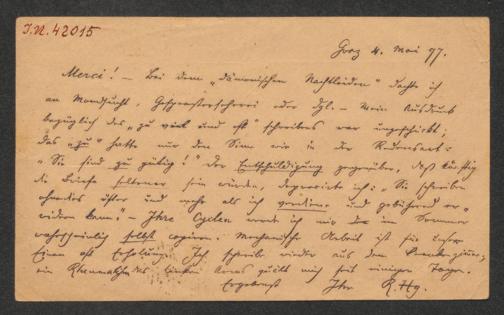 I.N. 42015
Graz 4. Mai 97.
Merci! – Bei dem „dämonischen Nachtleiden" dachte ich
an Mondsucht, Gespensterseherei oder dgl. – Mein Ausdruck
bezüglich des „zu viel und oft" schreibens war ungeschickt;
das „zu" hatte nur den Sinn wie in der Redensart:
„Sie sind zu gütig!" Der Entschuldigung gegenüber, daß künftig
die Briefe seltener sein würden, ich: „Sie schreiben
ohnedies öfter und mehr als ich verdiene und gebührend er-
widern kann." – Ihre Cyclen werde ich mir im Sommer
wahrscheinlich selbst copiren. Mechanische Arbeit ist für unser
Einen oft Erholung. Ich schreibe wieder aus dem
ein Rheumatismus des linken Armes quält mich seit einigen Tagen.
Ergebenst Ihr R. Hg.